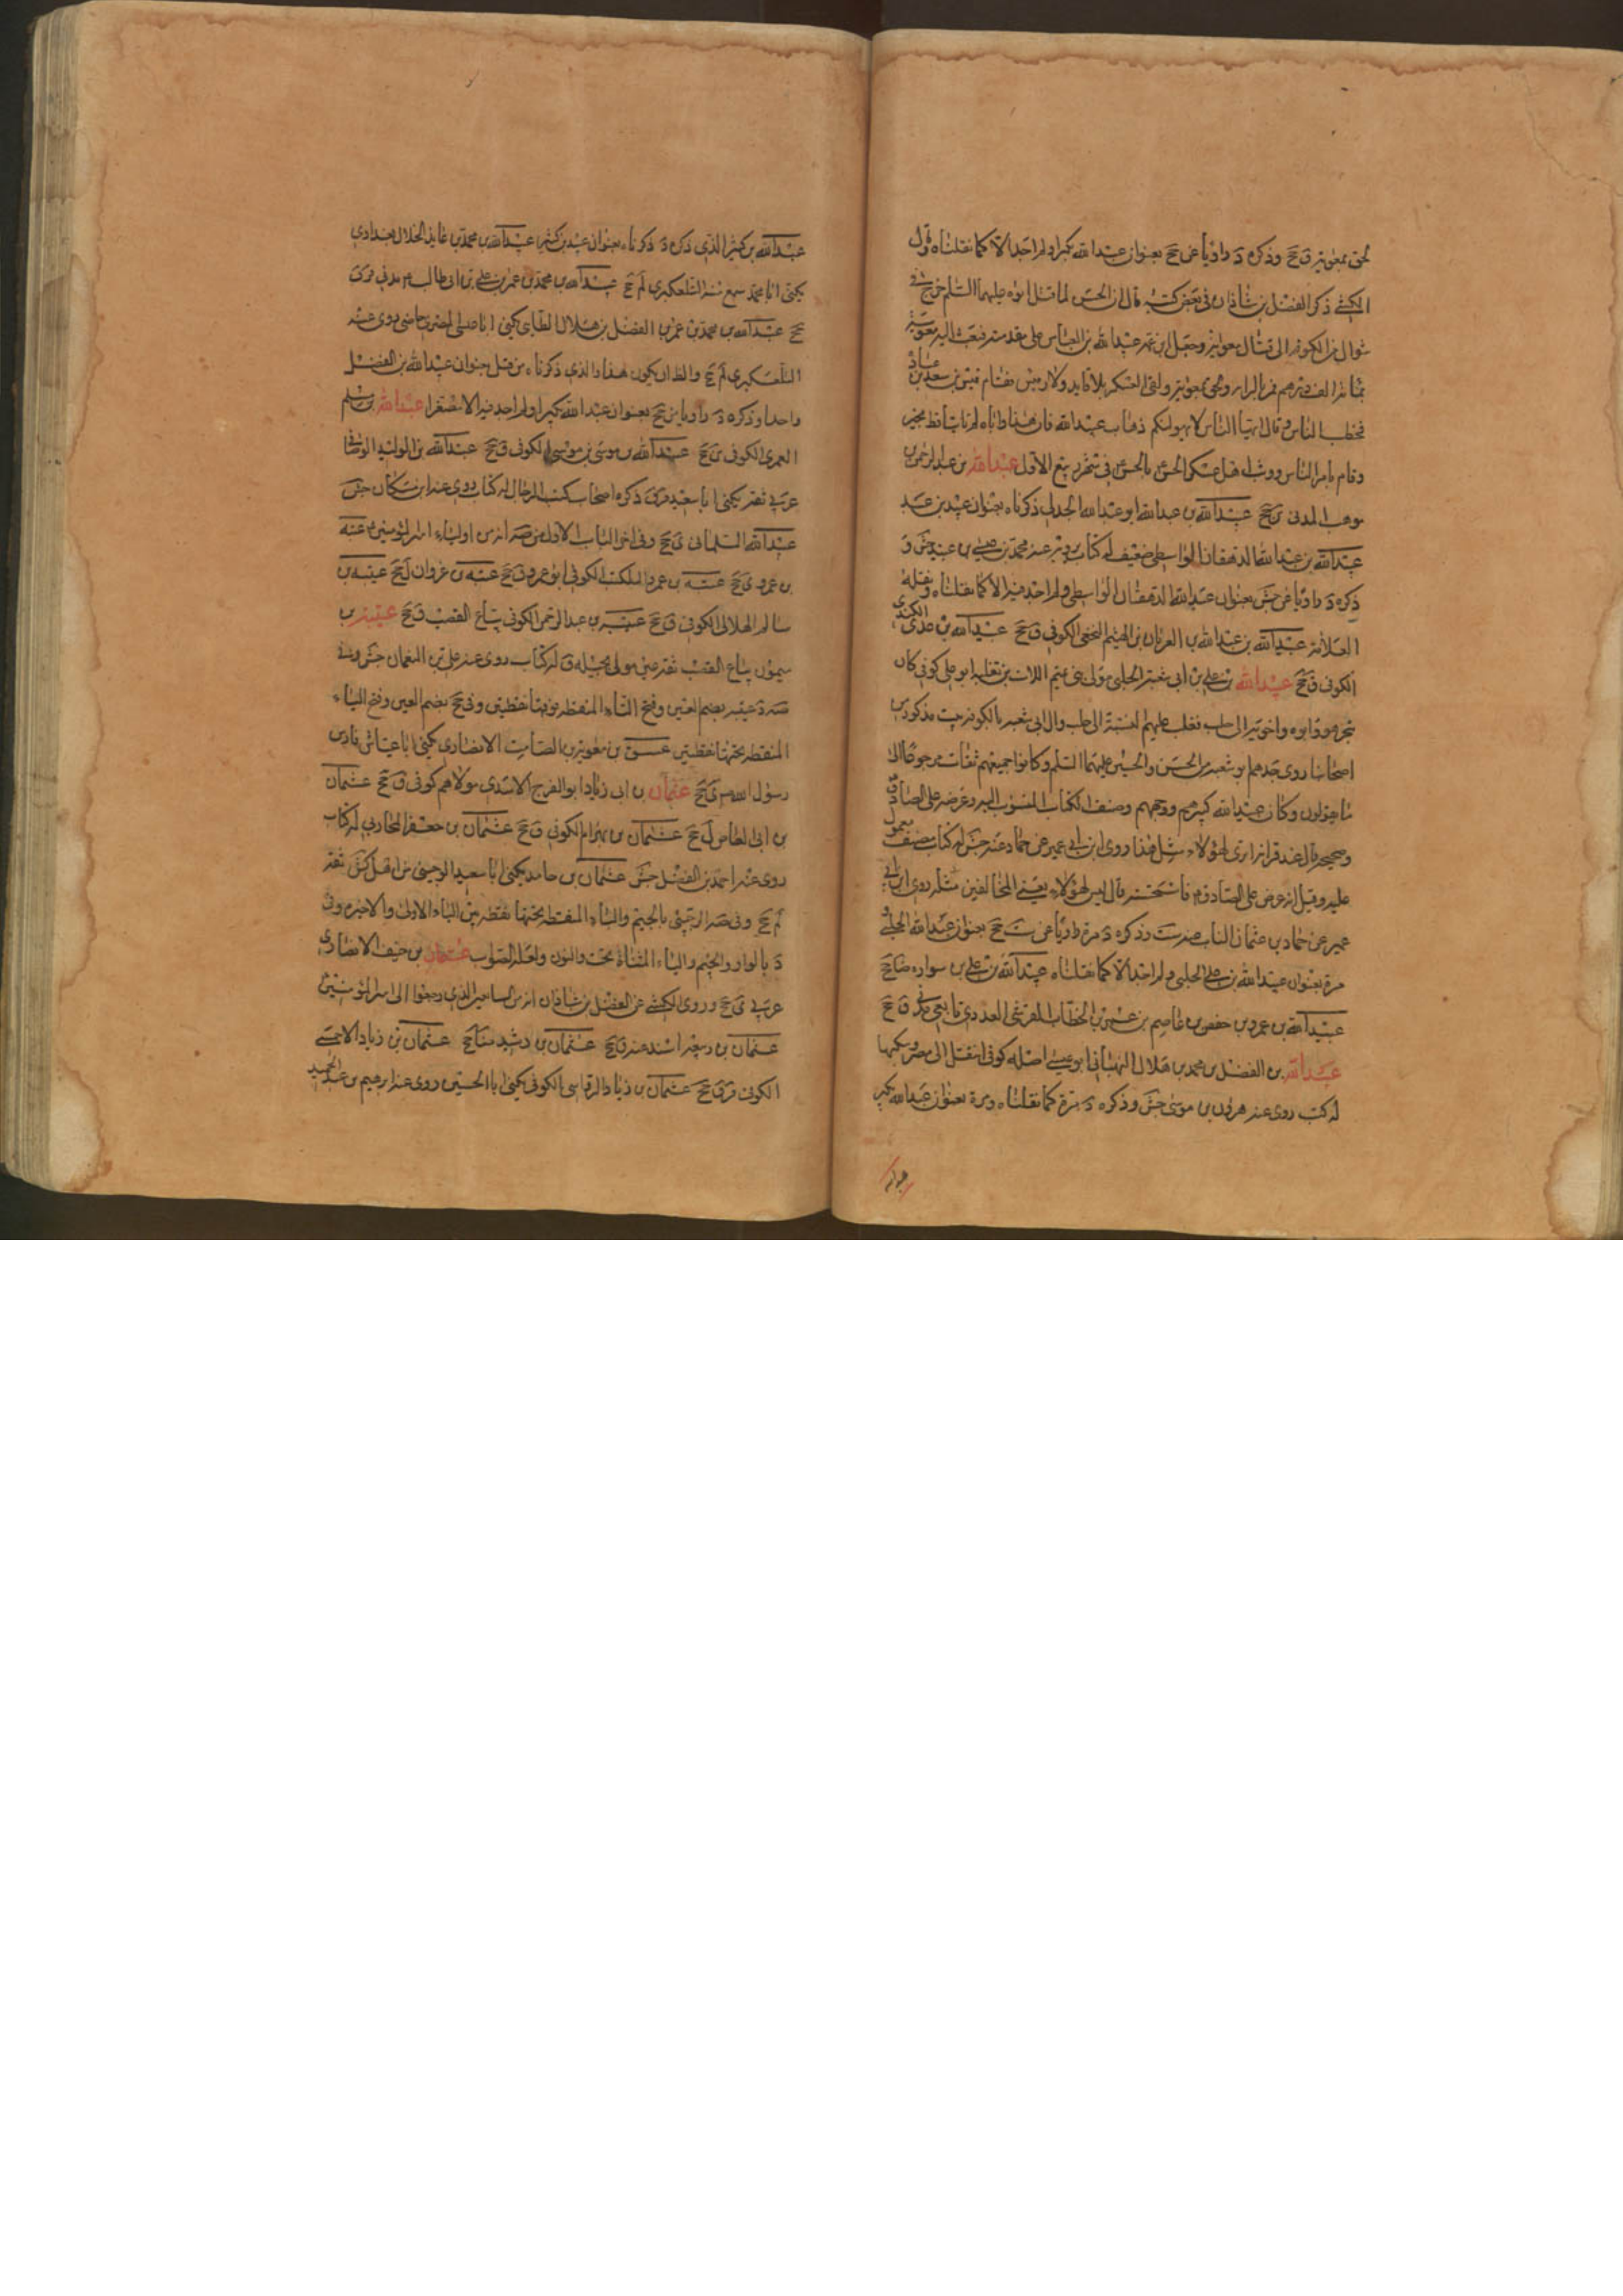 لحق بمعوية ق جخ وذكره د راويا عن جخ بعنوان عبد الله مكبرا ولم اجد الا كما نقلناه وقال
الكشي ذكر الفضل بن شاذان في بعض كتبه قال ان الحسن لما قتل ابوه عليهما السلم خرج في
شوال من الكوفة الى قتال معوية وجعل ابن عمه عبيد الله بن العباس على مقدمته فبعث اليه معوية
بمائة الف درهم فمر بالراية ولحق بمعوية وبقي العسكر بلا قايد ولا رئيس فقام قيس بن سعد بن عبادة
فخطب الناس وقال ايها الناس لا يهولنكم ذهاب عبيد الله فان هذا واباه لم ياتيا قط بخير
وقام بامر الناس ووثب اهل عسكر الحسن بالحسن في شهر ربيع الاول عبيد الله بن عبد الرحمن بن
موهب المدني ين جخ عبيد الله بن عبد الله ابو عبد الله الجدلي ذكرناه بعنوان عبيد بن عبد
عبيد الله بن عبد الله الدهقان الواسطي ضعيف له كتاب يرويه عنه محمد بن عيسى بن عبيد جش و
ذكره د راويا عن جش بعنوان عبد الله الدهقان الواسطي ولم اجد فيه الا كما نقلناه ونقله
العلامة عبيد الله بن عبد الله بن العريان بن الهيثم النخعي الكوفي ق جخ عبيد الله بن عدي الكندي
الكوفي ق جخ عبيد الله بن علي بن ابي شعبة الحلبي مولى بني تيم اللات بن ثعلبة ابو علي كوفي كان
يتجر هو وابوه واخوته الى حلب فغلب عليهم النسبة الى حلب وال ابي شعبة بالكوفة بيت مذكور من
اصحابنا روى جدهم ابو شعبة عن الحسن والحسين عليهما السلم وكانوا جميعهم ثقات مرجوعا الى
ما يقولون وكان عبيد الله كبيرهم ووجههم وصنف الكتاب المنسوب اليه وعرضه على الصادق
وصححه قال عند قراته اترى لهؤلاء مثل هذا روى ابن ابي عمير عن حماد عنه جش له كتاب مصنف معمول
عليه وقيل انه عرض على الصادق م فاستحسنه وقال ليس لهؤلاء يعني المخالفين مثله روى ابن ابي
عمير عن حماد بن عثمان الناب عنه ست وذكره د مرة راويا عن ست جخ بعنوان عبد الله الحلبي و
مرة بعنوان عبيد الله بن علي الحلبي ولم اجد الا كما نقلناه عبيد الله بن علي بن سواره ضا جخ
عبيد الله بن عمرو بن حفص بن عاصم بن عمر بن الخطاب القرشي العدوي تابعي مدني ق جخ
عبيد الله بن الفضل بن محمد بن هلال النبهاني ابو عيسى اصله كوفي انتقل الى مصر وسكنها
له كتب روى عنه هرون بن موسى جش وذكره د مرة كما نقلناه ومرة بعنوان عبد الله مكبر
عبد الله بن كثير الذي ذكره د ذكرناه بعنوان عبيد بن كثير عبيد الله بن محمد بن عايذ الخلال بغدادي
يكنى ابا محمد سمع منه التلعكبري لم جخ عبيد الله بن محمد بن عمر بن علي بن ابي طالب م مدني قر ق
جخ عبيد الله بن محمد بن عمر بن الفضل بن هلال الطايي يكنى ابا عيسى المصري خاصي روى عنه
التلعكبري لم جخ والظ ان يكون هذا والذي ذكرناه من قبل بعنوان عبيد الله بن الفضل
واحدا وذكره د راويا من جخ بعنوان عبد الله مكبرا ولم اجد فيه الا مصغرا عبيد الله بن مسلم
العمري الكوفي ين جخ عبيد الله بن موسى بن موسى الكوفي ق جخ عبيد الله بن الوليد الوصافي
عربي ثقة يكنى ابا سعيد قر ق ذكره اصحاب كتب الرجال له كتاب روى عنه ابن مسكان جش
عبيد الله السلماني ي جخ وفي اخر الباب الاول من صه انه من اولياء امير المؤمنين م عتبه
بن عمرو ي جخ عتبه بن عمرو المكتب الكوفي ابو عمرو ق جخ عتبه بن غزوان ل جخ عتيبه بن
سالم الهلالي الكوفي ق جخ عتيبه بن عبد الرحمن الكوفي بياع القصب ق جخ عتيبة بن
ميمون بياع القصب ثقة عين مولى بجيلة ق له كتاب روى عنه علي بن النعمان جش وفي
صه د عتيبه بضم العين وفتح التاء المنقطه فوقها نقطتين وفي جخ بضم العين وفتح الياء
المنقطه تحتها نقطتين عتيق بن معوية بن الصامت الانصاري يكنى ابا عياش فارس
رسول الله ص ي جخ عثمان بن ابي زياد ابو الفرج الاسدي مولاهم كوفي ق جخ عثمان
بن ابي العاص ل جخ عثمان بن بهرام الكوفي ق جخ عثمان بن جعفر المحاربي له كتاب
روى عنه احمد بن الفضل جش عثمان بن حامد يكنى ابا سعيد الوجيني من اهل كش ثقة
لم جخ وفي صه الرجيني بالجيم والياء المنقطه تحتها نقطه بين الياء الاولى والاخيره وفي
د بالواو والجيم والياء المثناة تحت والنون ولعله الصواب عثمان بن حنيف الانصاري
عربي ي جخ وروى الكشي عن الفضل بن شاذان انه من السابقين الذي رجعوا الى امير المؤمنين
عثمان بن ربيعه اسند عنه ق جخ عثمان بن رشيد ضا جخ عثمان بن زياد الاحمسي
الكوفي قر ق جخ عثمان بن زياد الرقاسي الكوفي يكنى ابا الحسين روى عنه ابرهيم بن عبد الحميد